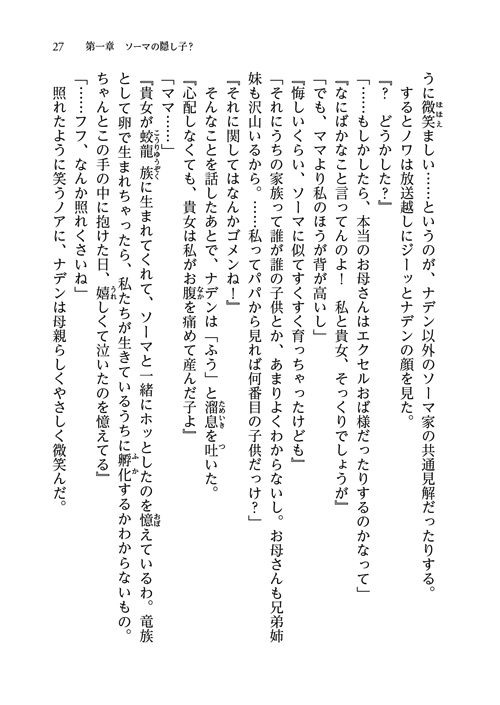 27　第一章　ソーマの隠し子？
うに微笑ましい……というのが、ナデン以外のソーマ家の共通見解だったりする。
するとノワは放送越しにジーッとナデンの顔を見た。
『？　どうかした？』
「……もしかしたら、本当のお母さんはエクセルおば様だったりするのかなって」
『なにばかなこと言ってんのよ！　私と貴女、そっくりでしょうが』
「でも、ママより私のほうが背が高いし」
『悔しいくらい、ソーマに似てすくすく育っちゃったけども』
「それにうちの家族って誰が誰の子供とか、あまりよくわからないし。お母さんも兄弟姉
妹も沢山いるから。……私ってパパから見れば何番目の子供だっけ？」
『それに関してはなんかゴメンね！』
そんなことを話したあとで、ナデンは「ふう」と溜息を吐いた。
『心配しなくても、貴女は私がお腹を痛めて産んだ子よ』
「ママ……」
『貴女が蛟龍族に生まれてくれて、ソーマと一緒にホッとしたのを憶えているわ。竜族
として卵で生まれちゃったら、私たちが生きているうちに孵化するかわからないもの。
ちゃんとこの手の中に抱けた日、嬉しくて泣いたのを憶えてる』
「……フフ、なんか照れくさいね」
照れたように笑うノアに、ナデンは母親らしくやさしく微笑んだ。